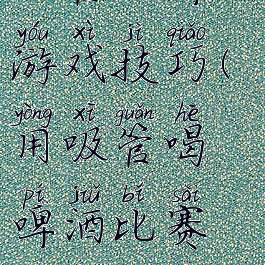 yóu xì jì qiǎo
游戏技巧(
yòng xī guǎn hē
用吸管喝
pí jiǔ bǐ sài
啤酒比赛